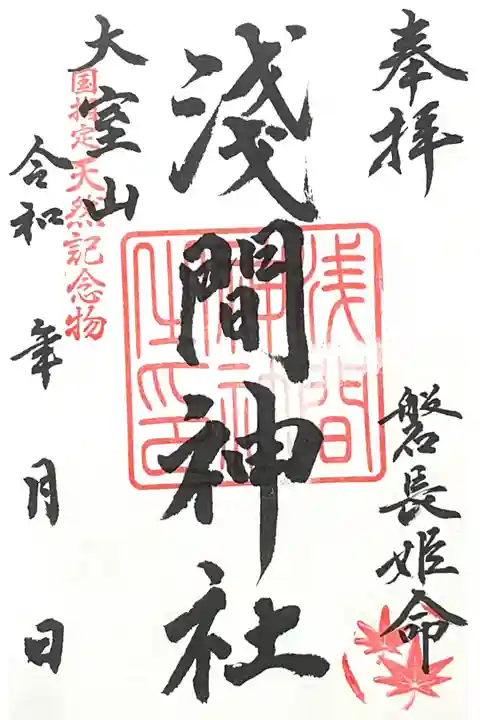 奉拝
磐長姫命
淺間神社
浅間
神社
之印
大室山
国指定天然記念物
令和 年 月 日